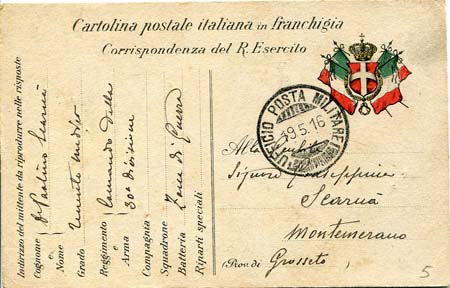 Cartolina postale italiana in franchigia
Corrispondenza del R. Esercito
Indirizzo del mittente da riprodurre nelle risposte
Cognome
e
Nome
Grado
Reggimento Comando della
e
Arma 30a divisione
Compagnia
Squadrone Zona di Guerra
Batteria
Riparti speciali
UFFICIO POSTA MILITARE
19.5.16
All
Signor Giuseppine
Scarnà
Montemerano
(Prov. di Grosseto)
5